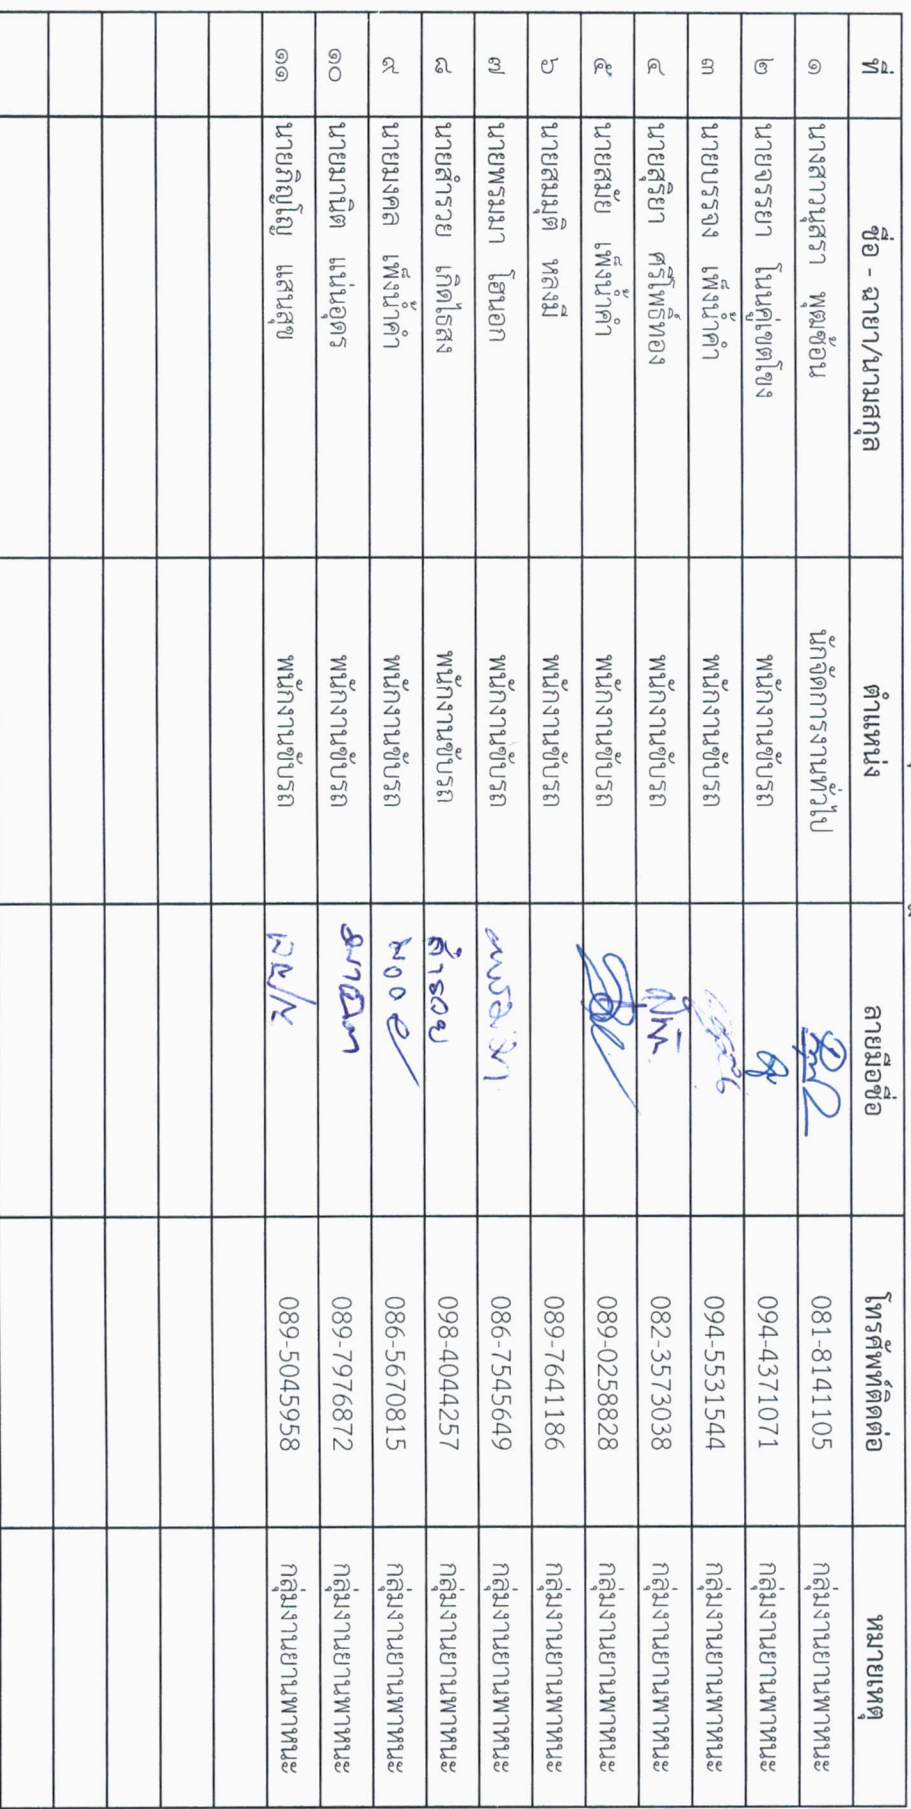 ที่ ชื่อ - ฉายา/นามสกุล ตำแหน่ง ลายมือชื่อ โทรศัพท์ติดต่อ หมายเหตุ
๑ นางสาวนุสรา พุฒซ้อน นักจัดการงานทั่วไป 081-8141105 กลุ่มงานยานพาหนะ
๒ นายจรรยา โนนคู่เขตโขง พนักงานขับรถ 094-4371071 กลุ่มงานยานพาหนะ
๓ นายบรรจง เพ็งน้ำคำ พนักงานขับรถ 094-5531544 กลุ่มงานยานพาหนะ
๔ นายสุริยา ศรีโพธิ์ทอง พนักงานขับรถ 082-3573038 กลุ่มงานยานพาหนะ
๕ นายสมัย เพ็งน้ำคำ พนักงานขับรถ 089-0258828 กลุ่มงานยานพาหนะ
๖ นายสมมุติ หลงมี พนักงานขับรถ 089-7641186 กลุ่มงานยานพาหนะ
๗ นายพรมมา โฮนอก พนักงานขับรถ 086-7545649 กลุ่มงานยานพาหนะ
๘ นายสำรวย เกิดไธสง พนักงานขับรถ สำรวย 098-4044257 กลุ่มงานยานพาหนะ
๙ นายมงคล เพ็งน้ำคำ พนักงานขับรถ 086-5670815 กลุ่มงานยานพาหนะ
๑๐ นายมานิต แน่นอุดร พนักงานขับรถ 089-7976872 กลุ่มงานยานพาหนะ
๑๑ นายภิญโญ แสนสุข พนักงานขับรถ 089-5045958 กลุ่มงานยานพาหนะ